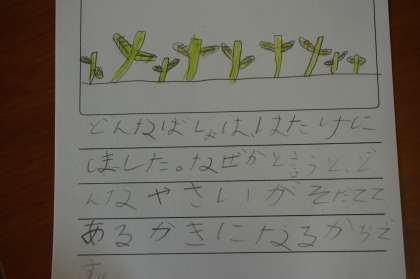 どんなばしょは、はたけに
しました。なぜかと言うと、ど
んなやさいがそだてて
あるかきになるからで
す